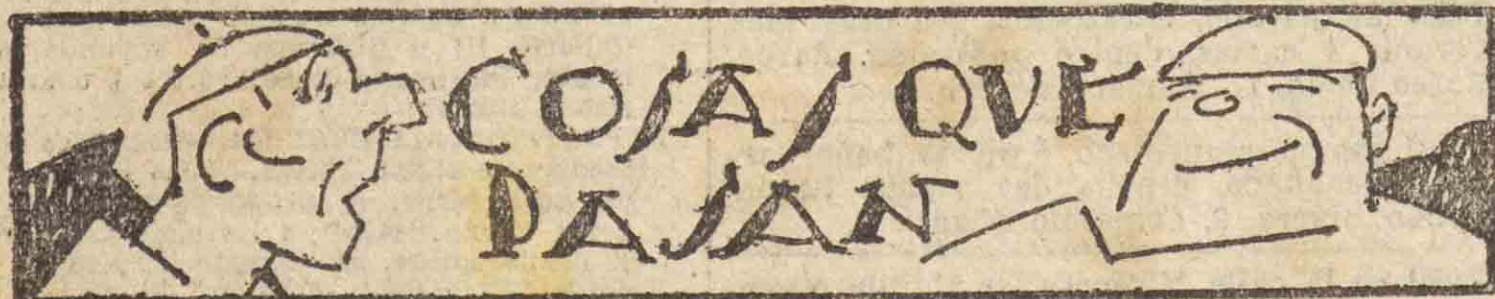 COSAS QUE
PASAN